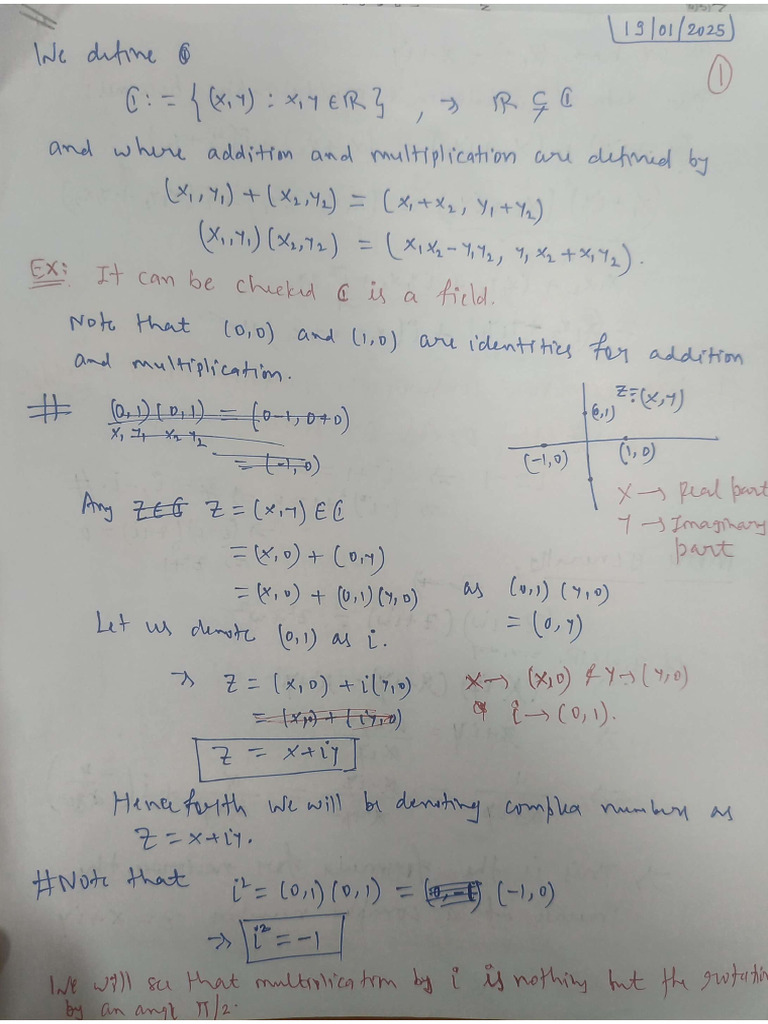 19/01/2025
①
We define ℂ
ℂ := { (x,y) : x,y ∈ ℝ } , → ℝ ⊊ ℂ
and where addition and multiplication are defined by
(x₁,y₁) + (x₂,y₂) = (x₁+x₂, y₁+y₂)
(x₁,y₁)(x₂,y₂) = (x₁x₂-y₁y₂, y₁x₂+x₁y₂).
Ex: It can be checked ℂ is a field.
Note that (0,0) and (1,0) are identities for addition
and multiplication.
# (0,1)(0,1) = (0-1, 0+0)
x₁ y₁ x₂ y₂
= (-1,0)
z=(x,y)
(0,1)
(-1,0) (1,0)
x → Real part
y → Imaginary
part
Any z∈ℂ z = (x,y) ∈ ℂ
= (x,0) + (0,y)
= (x,0) + (0,1)(y,0) as (0,1)(y,0)
= (0,y)
Let us denote (0,1) as i.
→ z = (x,0) + i(y,0) x → (x,0) & y → (y,0)
= (x,0) + (iy,0) & i → (0,1).
z = x+iy
Henceforth we will be denoting complex numbers as
z = x+iy.
# Note that i² = (0,1)(0,1) = (-1,0)
→ i² = -1
We will see that multiplication by i is nothing but the rotation
by an angle π/2.